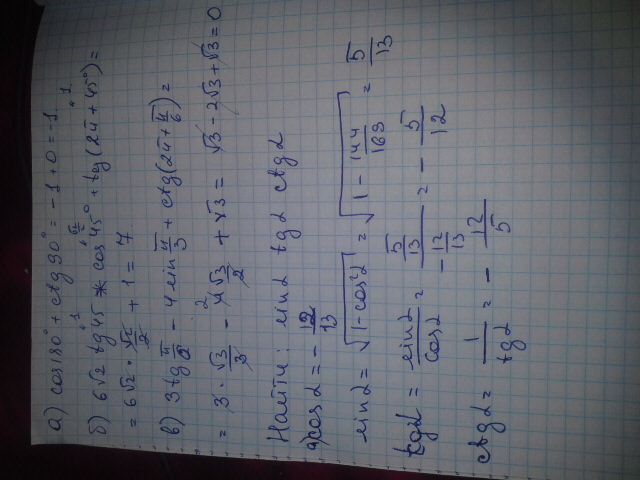 а) cos180° + ctg90° = -1 + 0 = -1
б) 6√2 tg45 * cos45° + tg(2π + 45°) =
= 6√2 · √2/2 + 1 = 7
в) 3tg π/6 - 4 sin π/3 + ctg(2π + π/6) =
= 3 · √3/3 - 4√3/2 + √3 = √3 - 2√3 + √3 = 0
Найти: sinα tgα ctgα
cosα = - 12/13
sinα = √1-cos²α = √1 - 144/169 = 5/13
tgα = sinα/cosα = 5/13 / - 12/13 = - 5/12
ctgα = 1/tgα = - 12/5